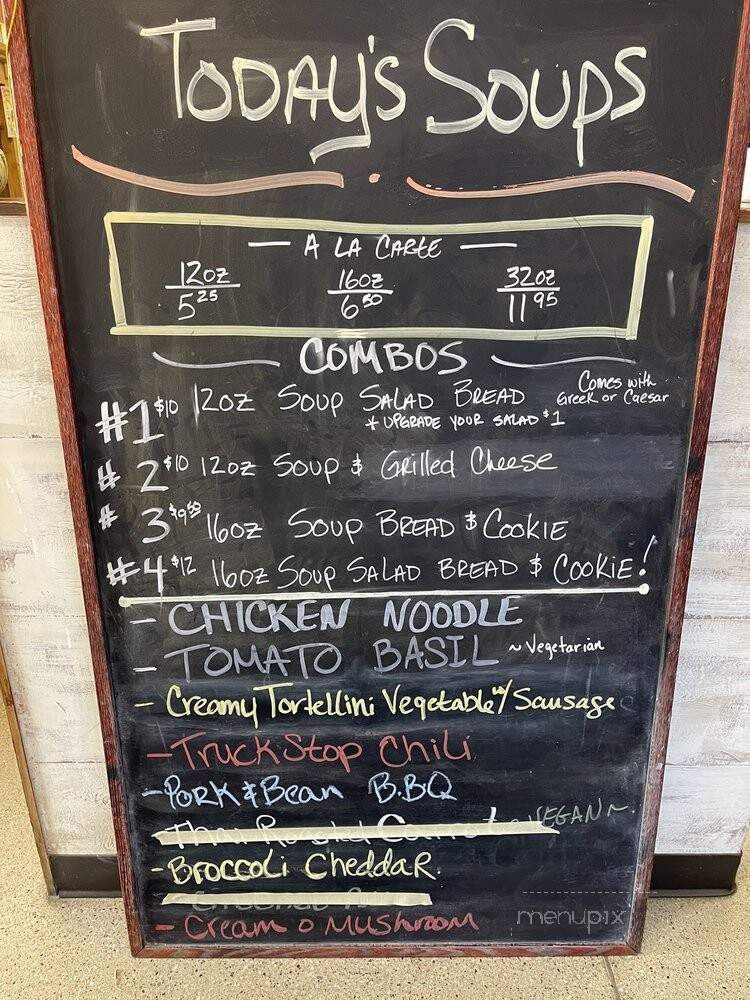 Today's Soups
A LA CARTE
12oz 16oz 32oz
5 25 6 50 11 95
COMBOS
#1 $10 12oz Soup Salad Bread Comes with Greek or Caesar
* UPGRADE YOUR SALAD $1
#2 $10 12oz Soup & Grilled Cheese
#3 $9 50 16oz Soup Bread & Cookie
#4 $12 16oz Soup Salad Bread & Cookie!
- CHICKEN NOODLE
- TOMATO BASIL ~ Vegetarian
- Creamy Tortellini Vegetable w/ Sausage
- Truck Stop Chili
- Pork & Bean B.BQ
VEGAN ~
- Broccoli Cheddar.
- Cream o Mushroom
menupix